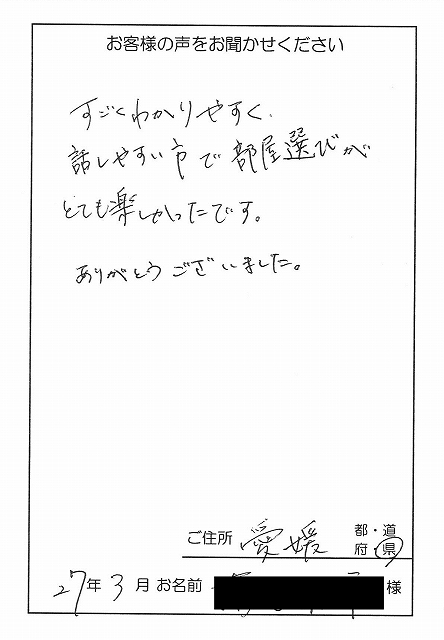 お客様の声をお聞かせください
すごくわかりやすく、
話しやすい方で部屋選びが
とても楽しかったです。
ありがとうございました。
ご住所 愛媛 都・道
府・県
27年3月 お名前 様